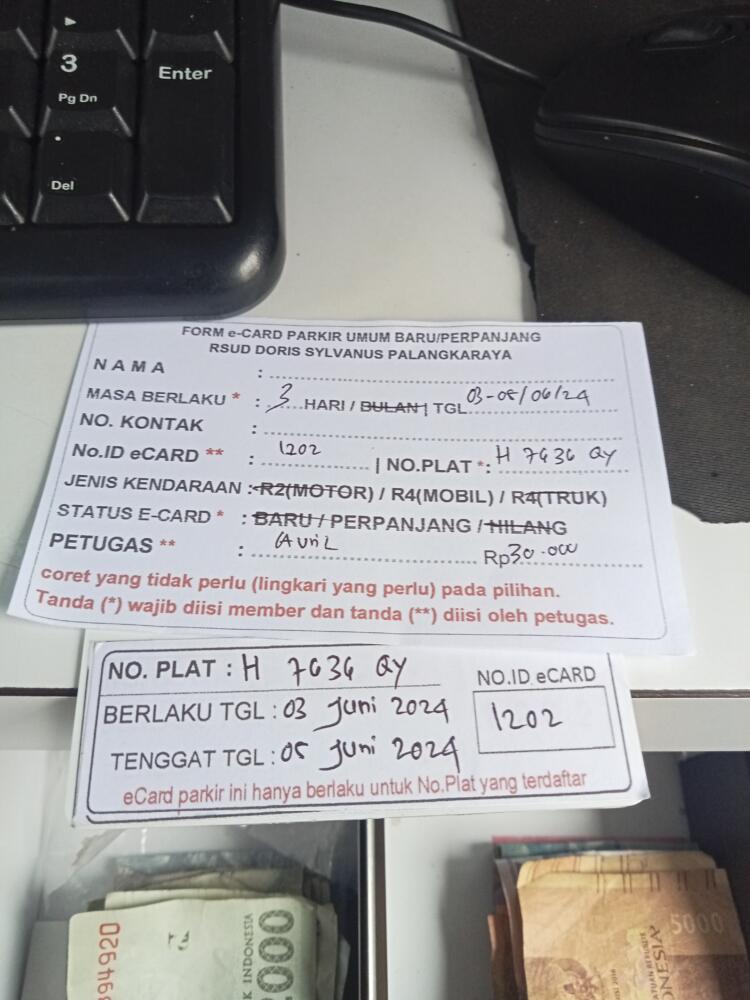 3
Pg Dn
Enter
.
Del
FORM e-CARD PARKIR UMUM BARU/PERPANJANG
RSUD DORIS SYLVANUS PALANGKARAYA
NAMA :
MASA BERLAKU * : 3 HARI / BULAN | TGL 03-05/06/24
NO. KONTAK :
No.ID eCARD ** : 1202 | NO.PLAT *: H 7636 QY
JENIS KENDARAAN : R2(MOTOR) / R4(MOBIL) / R4(TRUK)
STATUS E-CARD * : BARU / PERPANJANG / HILANG
PETUGAS ** : Avril Rp30.000
coret yang tidak perlu (lingkari yang perlu) pada pilihan.
Tanda (*) wajib diisi member dan tanda (**) diisi oleh petugas.
NO. PLAT : H 7636 QY
NO.ID eCARD
1202
BERLAKU TGL : 03 Juni 2024
TENGGAT TGL : 05 Juni 2024
eCard parkir ini hanya berlaku untuk No.Plat yang terdaftar
394920
INDONESIA
000
5000